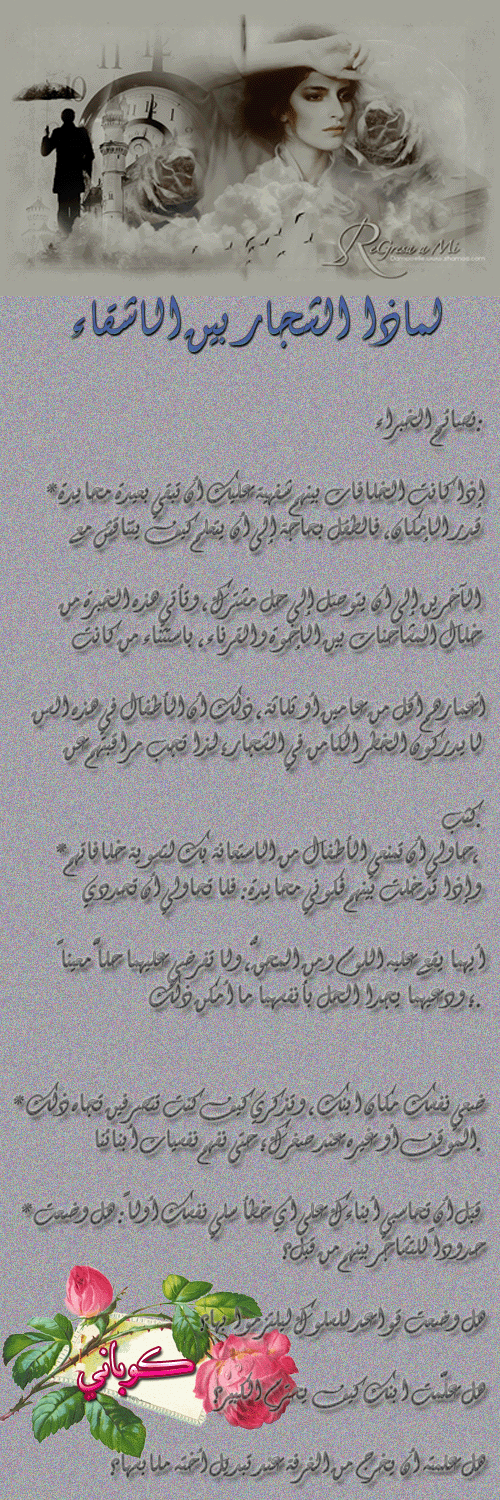 ReGresa a Mi
لماذا الشجار بين الاشقاء
نصائح الخبراء:
*إذا كانت الخلافات بينهم شفهية عليك أن تبقي بعيدة محايدة
قدر الإمكان، فالطفل بحاجة إلى أن يتعلم كيف يتناقش مع
الآخرين إلى أن يتوصل إلى حل مشترك، وتأتي هذه الخبرة من
خلال المشاحنات بين الإخوة والقرناء، باستثناء من كانت
أعمارهم أقل من عامين أو ثلاثة، ذلك أن الأطفال في هذه السن
لا يدركون الخطر الكامن في الشجار، لذا تجب مراقبتهم عن
كثب.
*حاولي أن تمنعي الأطفال من الاستعانة بك لتسوية خلافاتهم،
وإذا تدخلت بينهم فكوني محايدة: فلا تحاولي أن تحددي
أيهما يقع عليه اللوم ومن المحقّ، ولا تفرضي عليهما حلاً معيناً
؛ ودعيهما يجدا الحل بأنفسهما ما أمكن ذلك.
*ضعي نفسك مكان ابنك، وتذكري كيف كنت تتصرفين تجاه ذلك
الموقف أو غيره عند صغرك؛ حتى نفهم نفسيات أبنائنا.
*قبل أن تحاسبي أبناءك على أي خطأ سلي نفسك أولاً: هل وضعت
حدوداً للتشاجر بينهم من قبل؟
هل وضعت قواعد للسلوك ليلتزموا بها؟
هل علّمت ابنك كيف يحترم الكبير؟
هل علمته أن يخرج من الغرفة عند تبديل أخته ملابسها؟
كوباني